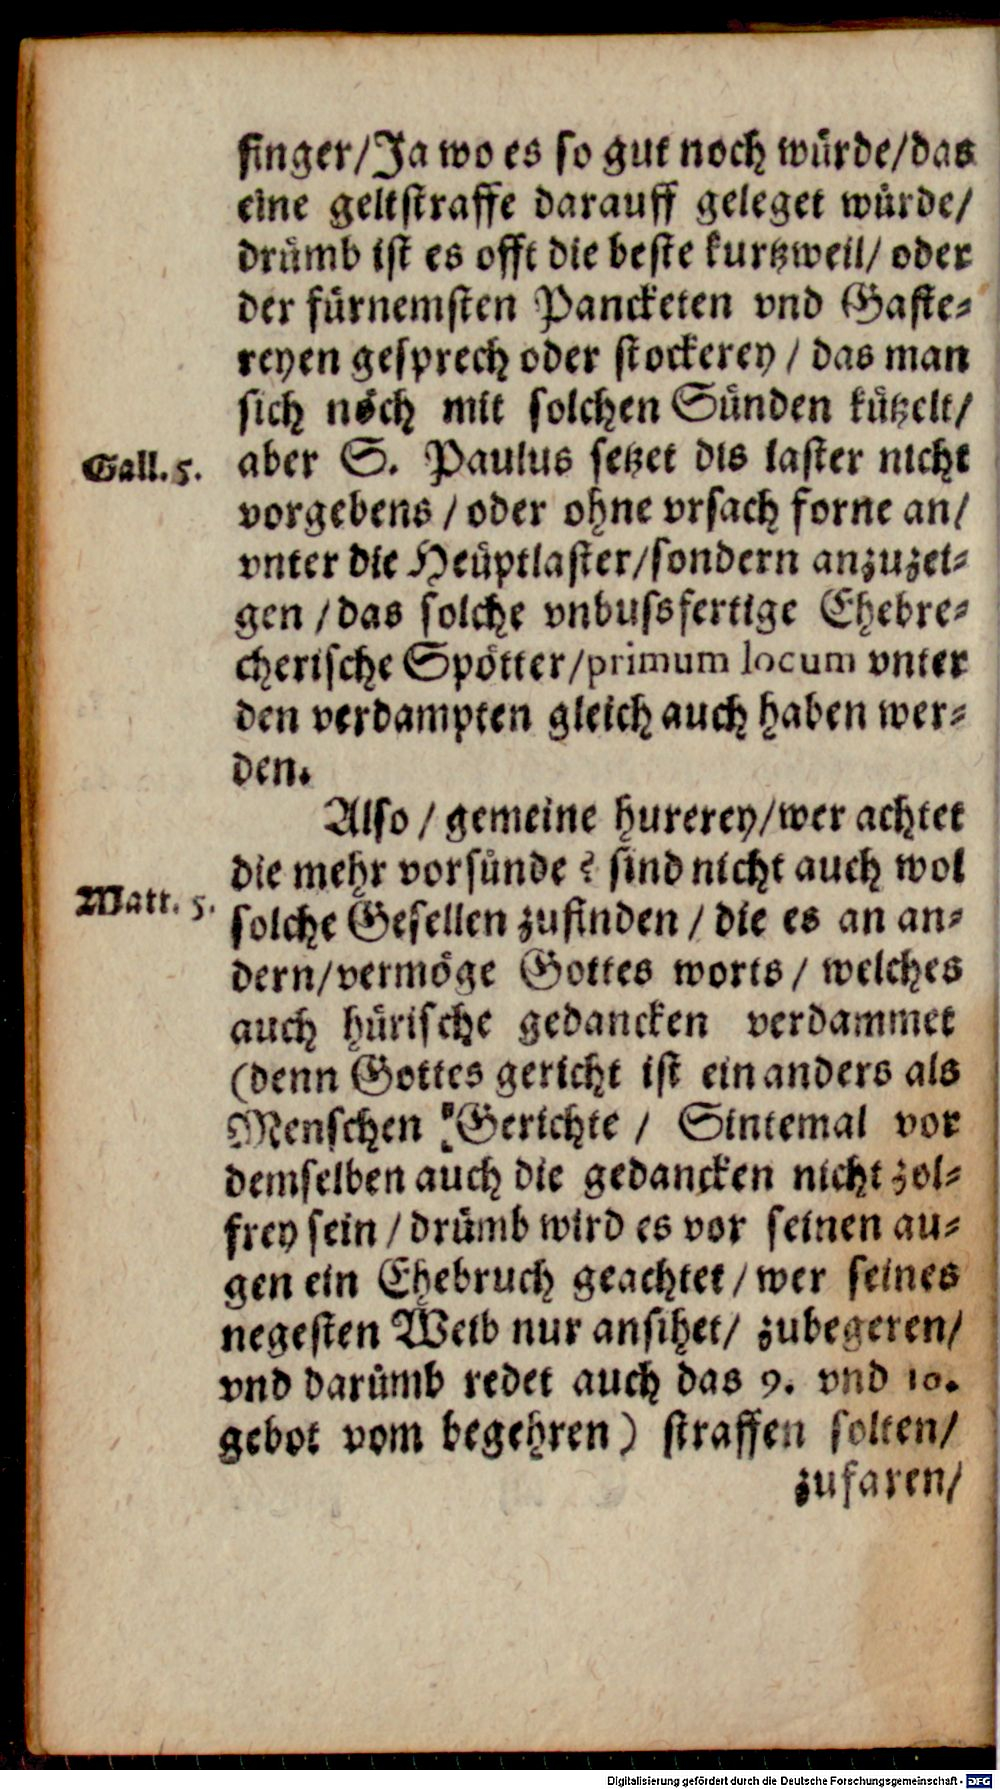 finger/Ja wo es so gut noch würde/das
eine geltstraffe darauff geleget würde/
drümb ist es offt die beste kurtzweil/ oder
der fürnemsten Pancketen vnd Gaste-
reyen gesprech oder stockerey / das man
sich noch mit solchen Sünden kützelt/
Gall. 5.
aber S. Paulus setzet dis laster nicht
vorgebens / oder ohne vrsach forne an/
vnter die Heüptlaster/sondern anzuzei-
gen / das solche vnbussfertige Ehebre-
cherische Spötter/primum locum vnter
den verdampten gleich auch haben wer-
den.
Also / gemeine hurerey/wer achtet
die mehr vorsünde ? sind nicht auch wol
Matt. 5.
solche Gesellen zufinden / die es an an-
dern/vermöge Gottes worts / welches
auch hürische gedancken verdammet
(denn Gottes gericht ist ein anders als
Menschen Gerichte / Sintemal vor
demselben auch die gedancken nicht zol-
frey sein / drümb wird es vor seinen au-
gen ein Ehebruch geachtet / wer seines
negesten Weib nur ansihet/ zubegeren/
vnd darümb redet auch das 9. vnd 10.
gebot vom begehren) straffen solten/
zufaren/
Digitalisierung gefördert durch die Deutsche Forschungsgemeinschaft - DFG